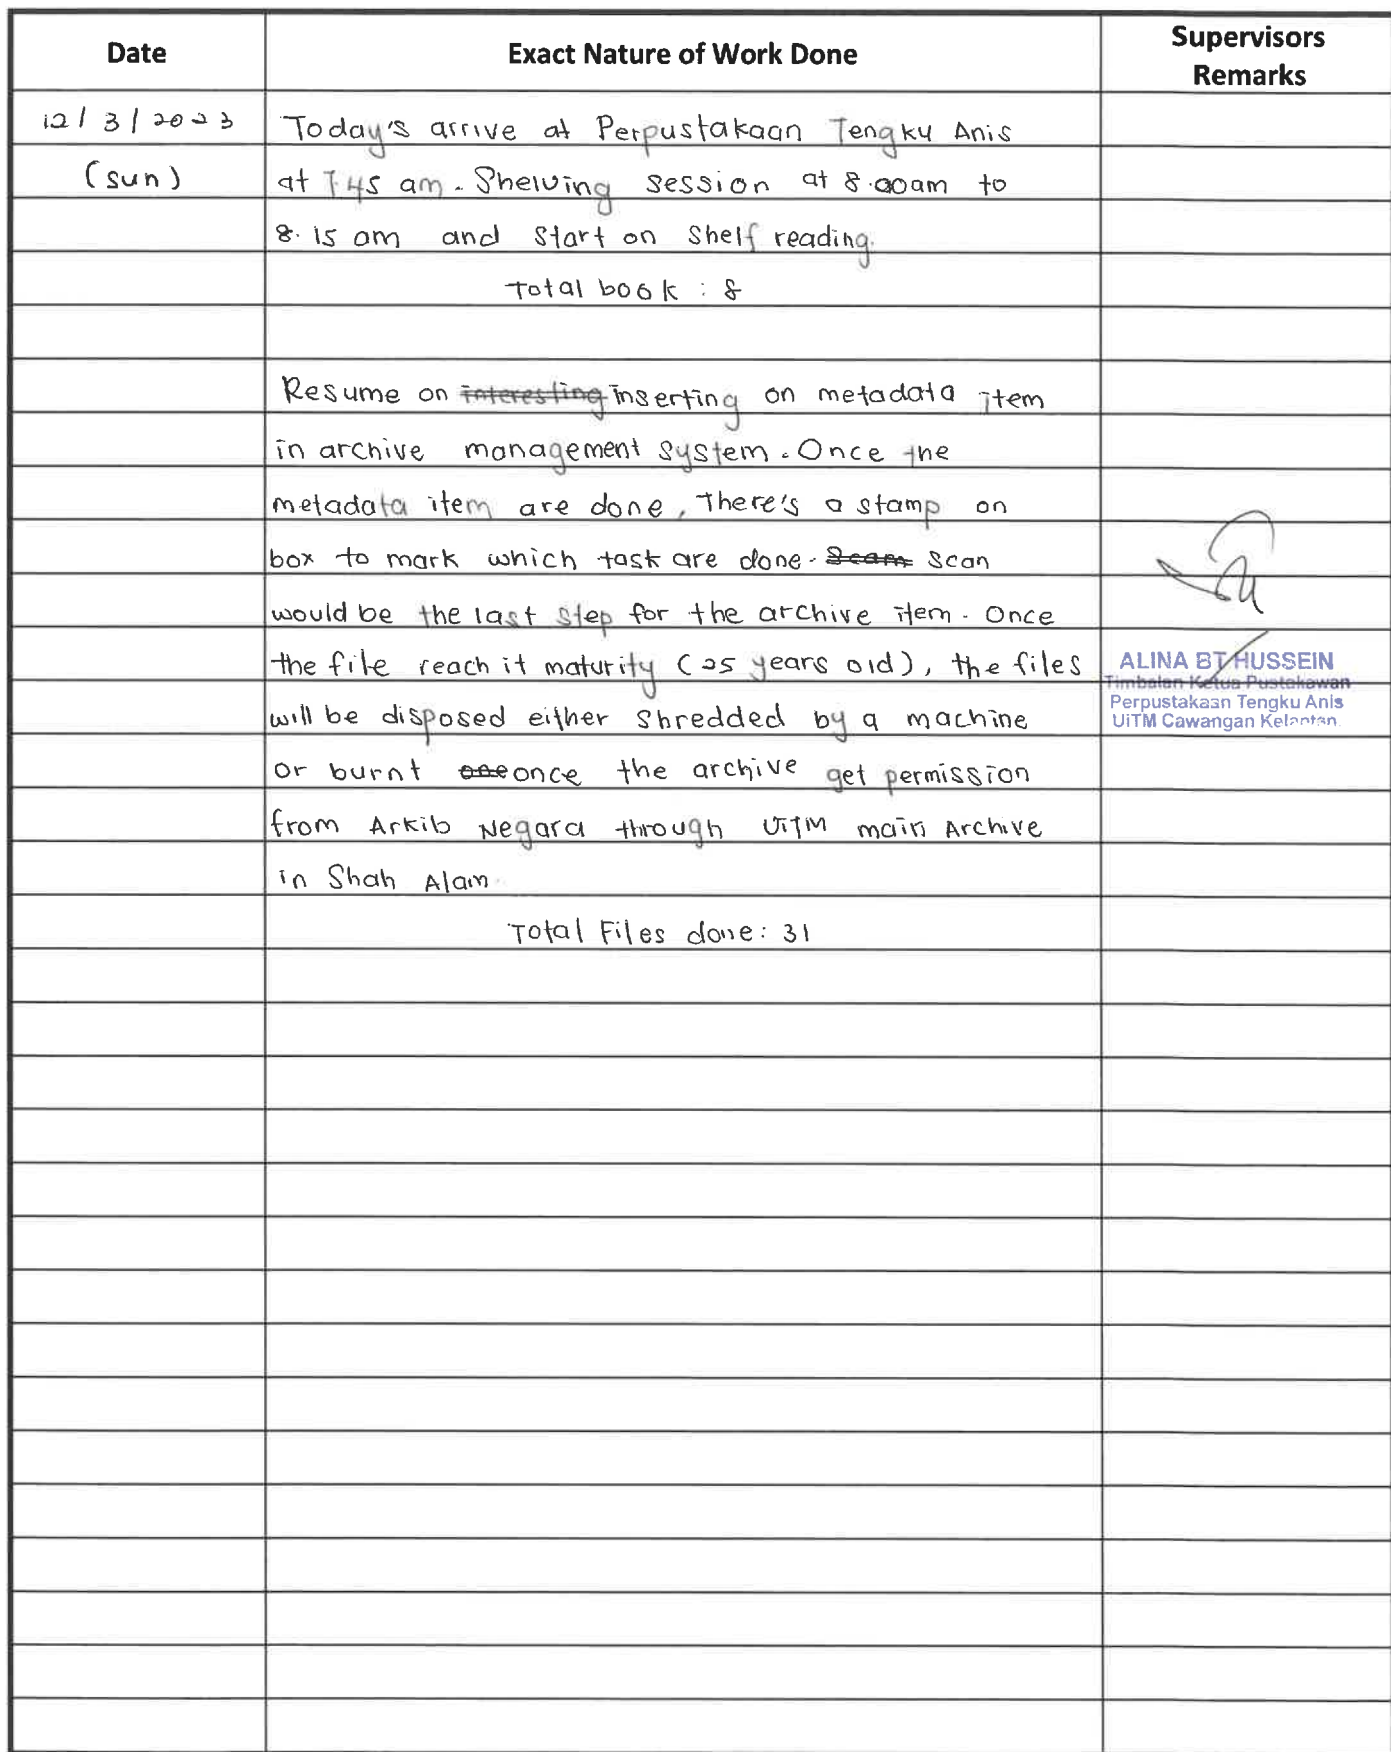 Date
Exact Nature of Work Done
Supervisors
Remarks
12/3/2023
(sun)
Today's arrive at Perpustakaan Tengku Anis
at 7.45 am. Shelving session at 8.00am to
8.15 am and start on Shelf reading.
Total book : 8
Resume on interesting inserting on metadata item
in archive management system. Once the
metadata item are done, There's a stamp on
box to mark which task are done. Scam Scan
would be the last step for the archive item. Once
the file reach it maturity (25 years old), the files
will be disposed either Shredded by a machine
or burnt one once the archive get permission
from Arkib Negara through UiTM main Archive
in Shah Alam.
Total Files done: 31
ALINA BT HUSSEIN
Timbalan Ketua Pustakawan
Perpustakaan Tengku Anis
UiTM Cawangan Kelantan.